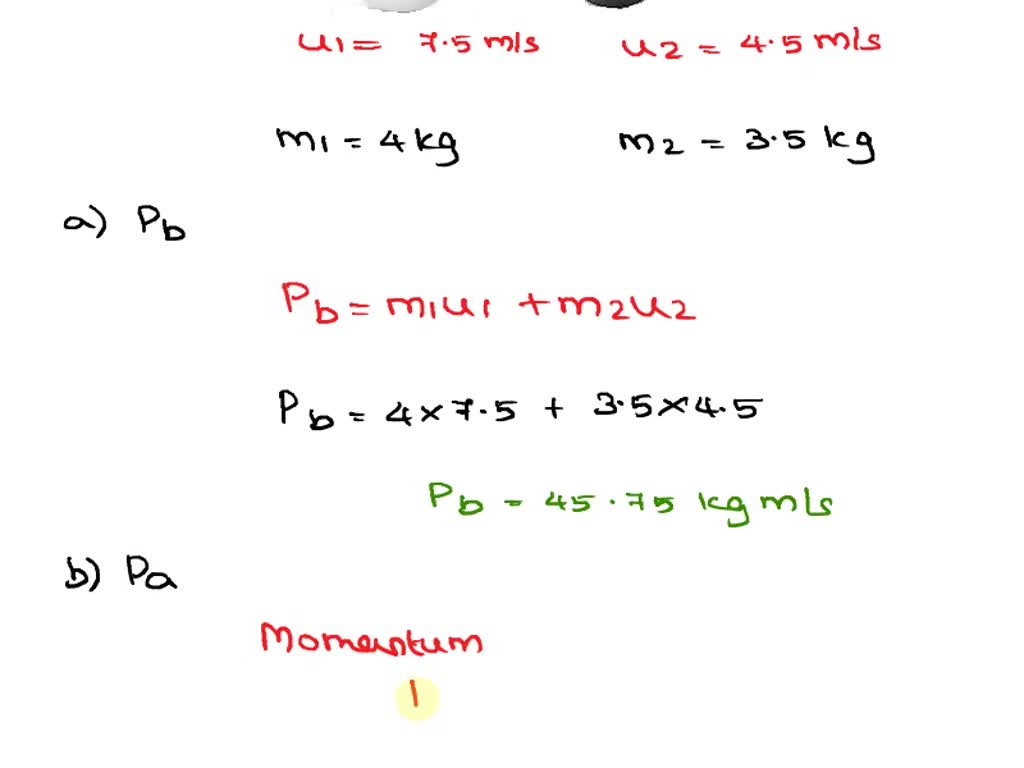 u1 = 7.5 m/s u2 = 4.5 m/s
m1 = 4 kg m2 = 3.5 kg
a) Pb
Pb = m1u1 + m2u2
Pb = 4 × 7.5 + 3.5 × 4.5
Pb = 45.75 kg m/s
b) Pa
Momentum